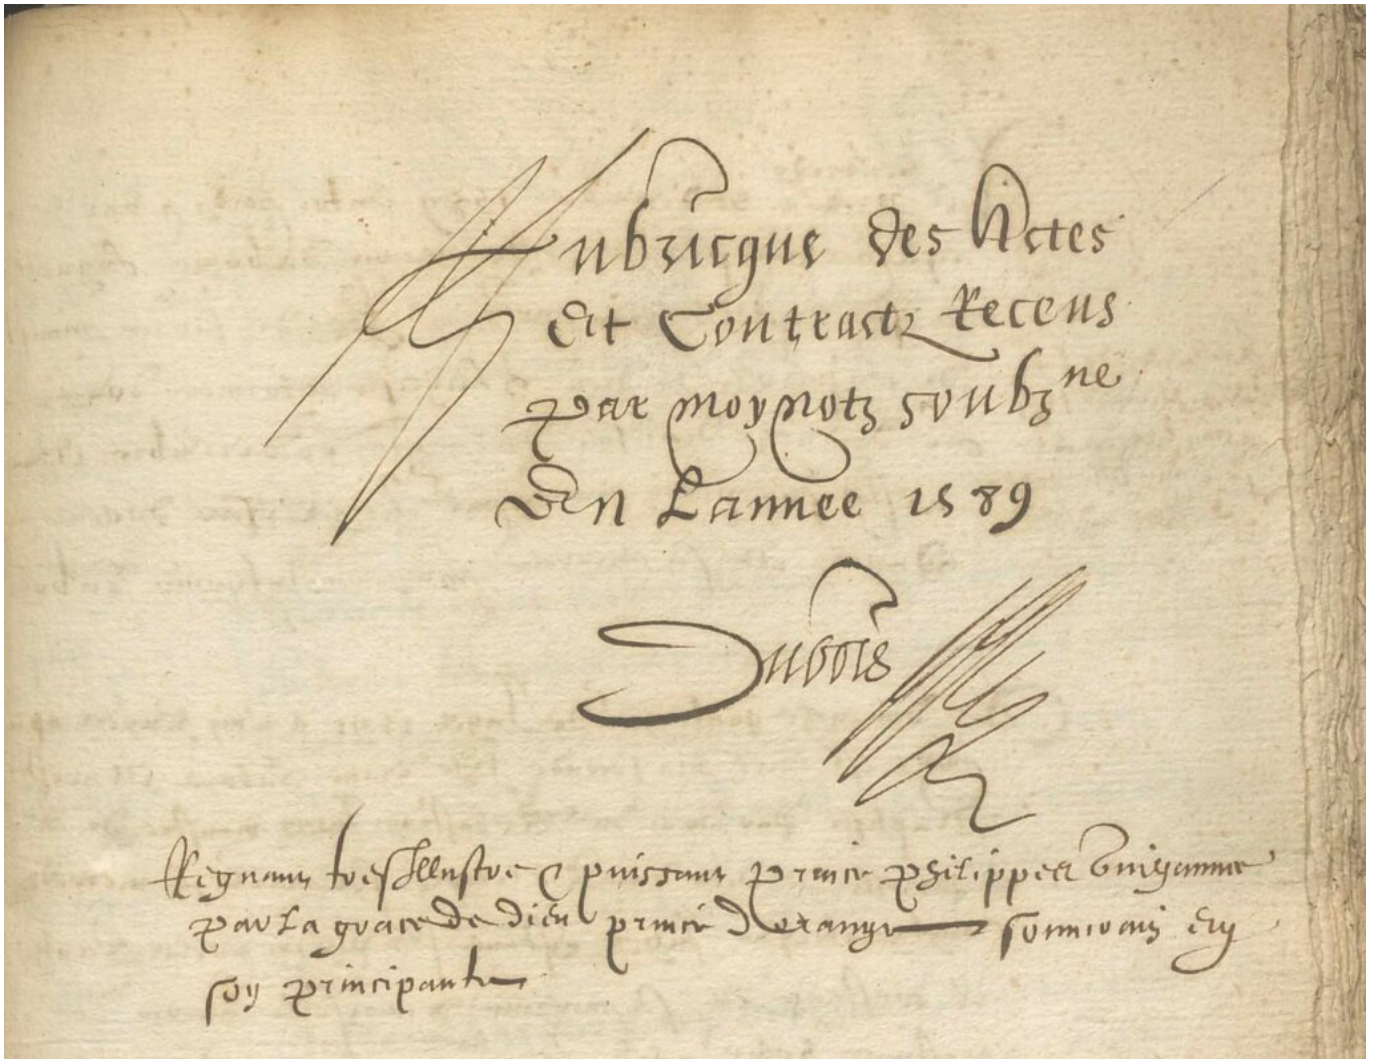 Rubricque des Actes
Et Contractz Receus
par moy notz soubzne
En Lannee 1589
Dubois
Regnant tresillustre & puissant prince philippes guilhaume
par la grace de dieu prince dorange souuerain en
soy principaute